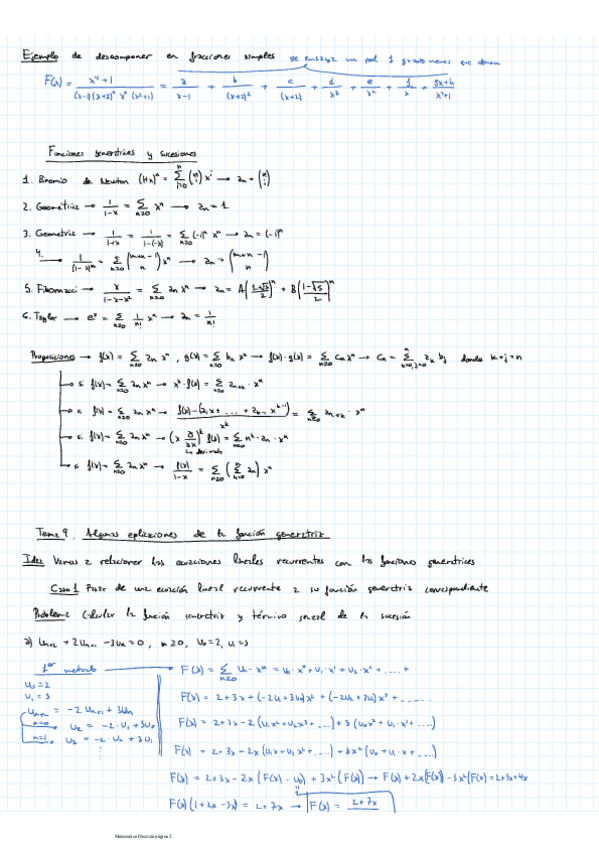 Ejemplo de descomponer en fracciones simples
F(x) = x⁴+1 / (x-1)(x+2)² x³ (x²+1) = a/(x-1) + b/(x+2)² + c/(x+2) + d/x³ + e/x² + f/x + gx+h/(x²+1)
Funciones generatrices y sucesiones
1. Binomio de Newton (1+x)ⁿ = Σ x^i → an =
2. Geométrica → 1/(1-x) = Σ n≥0 xⁿ → an = 1
3. Geometría → 1/(1+x) = 1/(1-(-x)) = Σ n≥0 (-1)ⁿ xⁿ → an = (-1)ⁿ
4. → 1/(1-x)^m = Σ n≥0 (m+n-1 n) xⁿ → an = (m+n-1 n)
5. Fibonacci → x/(1-x-x²) = Σ n≥0 an xⁿ → an = A((1+√5)/2)ⁿ + B((1-√5)/2)ⁿ
6. Taylor → eˣ = Σ n≥0 1/n! xⁿ → an = 1/n!
Proposiciones → f(x) = Σ n≥0 an xⁿ , g(x) = Σ n≥0 bn xⁿ → f(x)·g(x) = Σ n≥0 cn xⁿ → cn = Σ ak bj donde k+j=n
si f(x) = Σ n≥0 an xⁿ → f(x) = Σ n≥0 xⁿ
si f(x) = Σ n≥0 an xⁿ → = Σ n≥0 an+k · xⁿ
si f(x) = Σ n≥0 an xⁿ → f(x) = Σ n≥0 n^k · an · xⁿ
↳ derivada
si f(x) = Σ n≥0 an xⁿ → f(x)/(1-x) = Σ n≥0 xⁿ
Tema 9. Algunas aplicaciones de la función generatriz
Idea Vamos a relacionar las ecuaciones lineales recurrentes con las funciones generatrices
Caso 1 Pasar de una ecuación lineal recurrente a su función generatriz correspondiente
Problema Calcular la función generatriz y término general de la sucesión
a) Un+2 + 2Un+1 - 3Un = 0 , n≥0, U0=2, U1=3
1er método → F(x) = Σ n≥0 Un · xⁿ = U0·x⁰ + U1·x¹ + U2·x² + .... +
U0 = 2
U1 = 3
F(x) = 2+3x + (-2U1+3U0)x² + (-2U2+3U1)x³ + .....
Un+2 = -2Un+1 + 3Un
n=0 U2 = -2·U1 + 3U0
F(x) = 2+3x - 2(U1x²+U2x³+ ....) + 3(U0x²+U1·x³+ ....)
n=1 U3 = -2·U2 + 3U1
F(x) = 2+3x - 2x(U1x+U2x²+ ....) + 3x²(U0+U1·x+ ....)
F(x) = 2+3x - 2x(F(x) - U0) + 3x²(F(x)) → F(x) + 2x(F(x)) - 3x²(F(x)) = 2+3x+4x
F(x)(1+2x-3x²) = 2+7x → F(x) = 2+7x
Matematica Discreta página 2